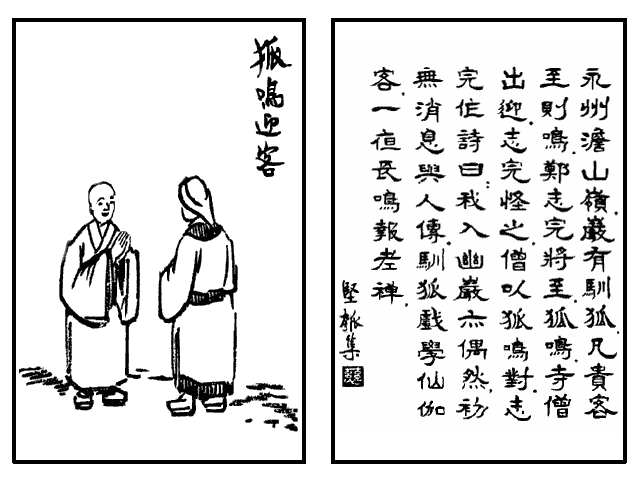 狐鳴迎客
永州澹山嶺.巖有馴狐.凡貴客
至則鳴.鄭志完將至.狐鳴.寺僧
出迎.志完怪之.僧以狐鳴對.志
完作詩曰:我入幽巖亦偶然.初
無消息與人傳.馴狐戲學仙伽
客.一夜長鳴報老禪.
堅瓠集